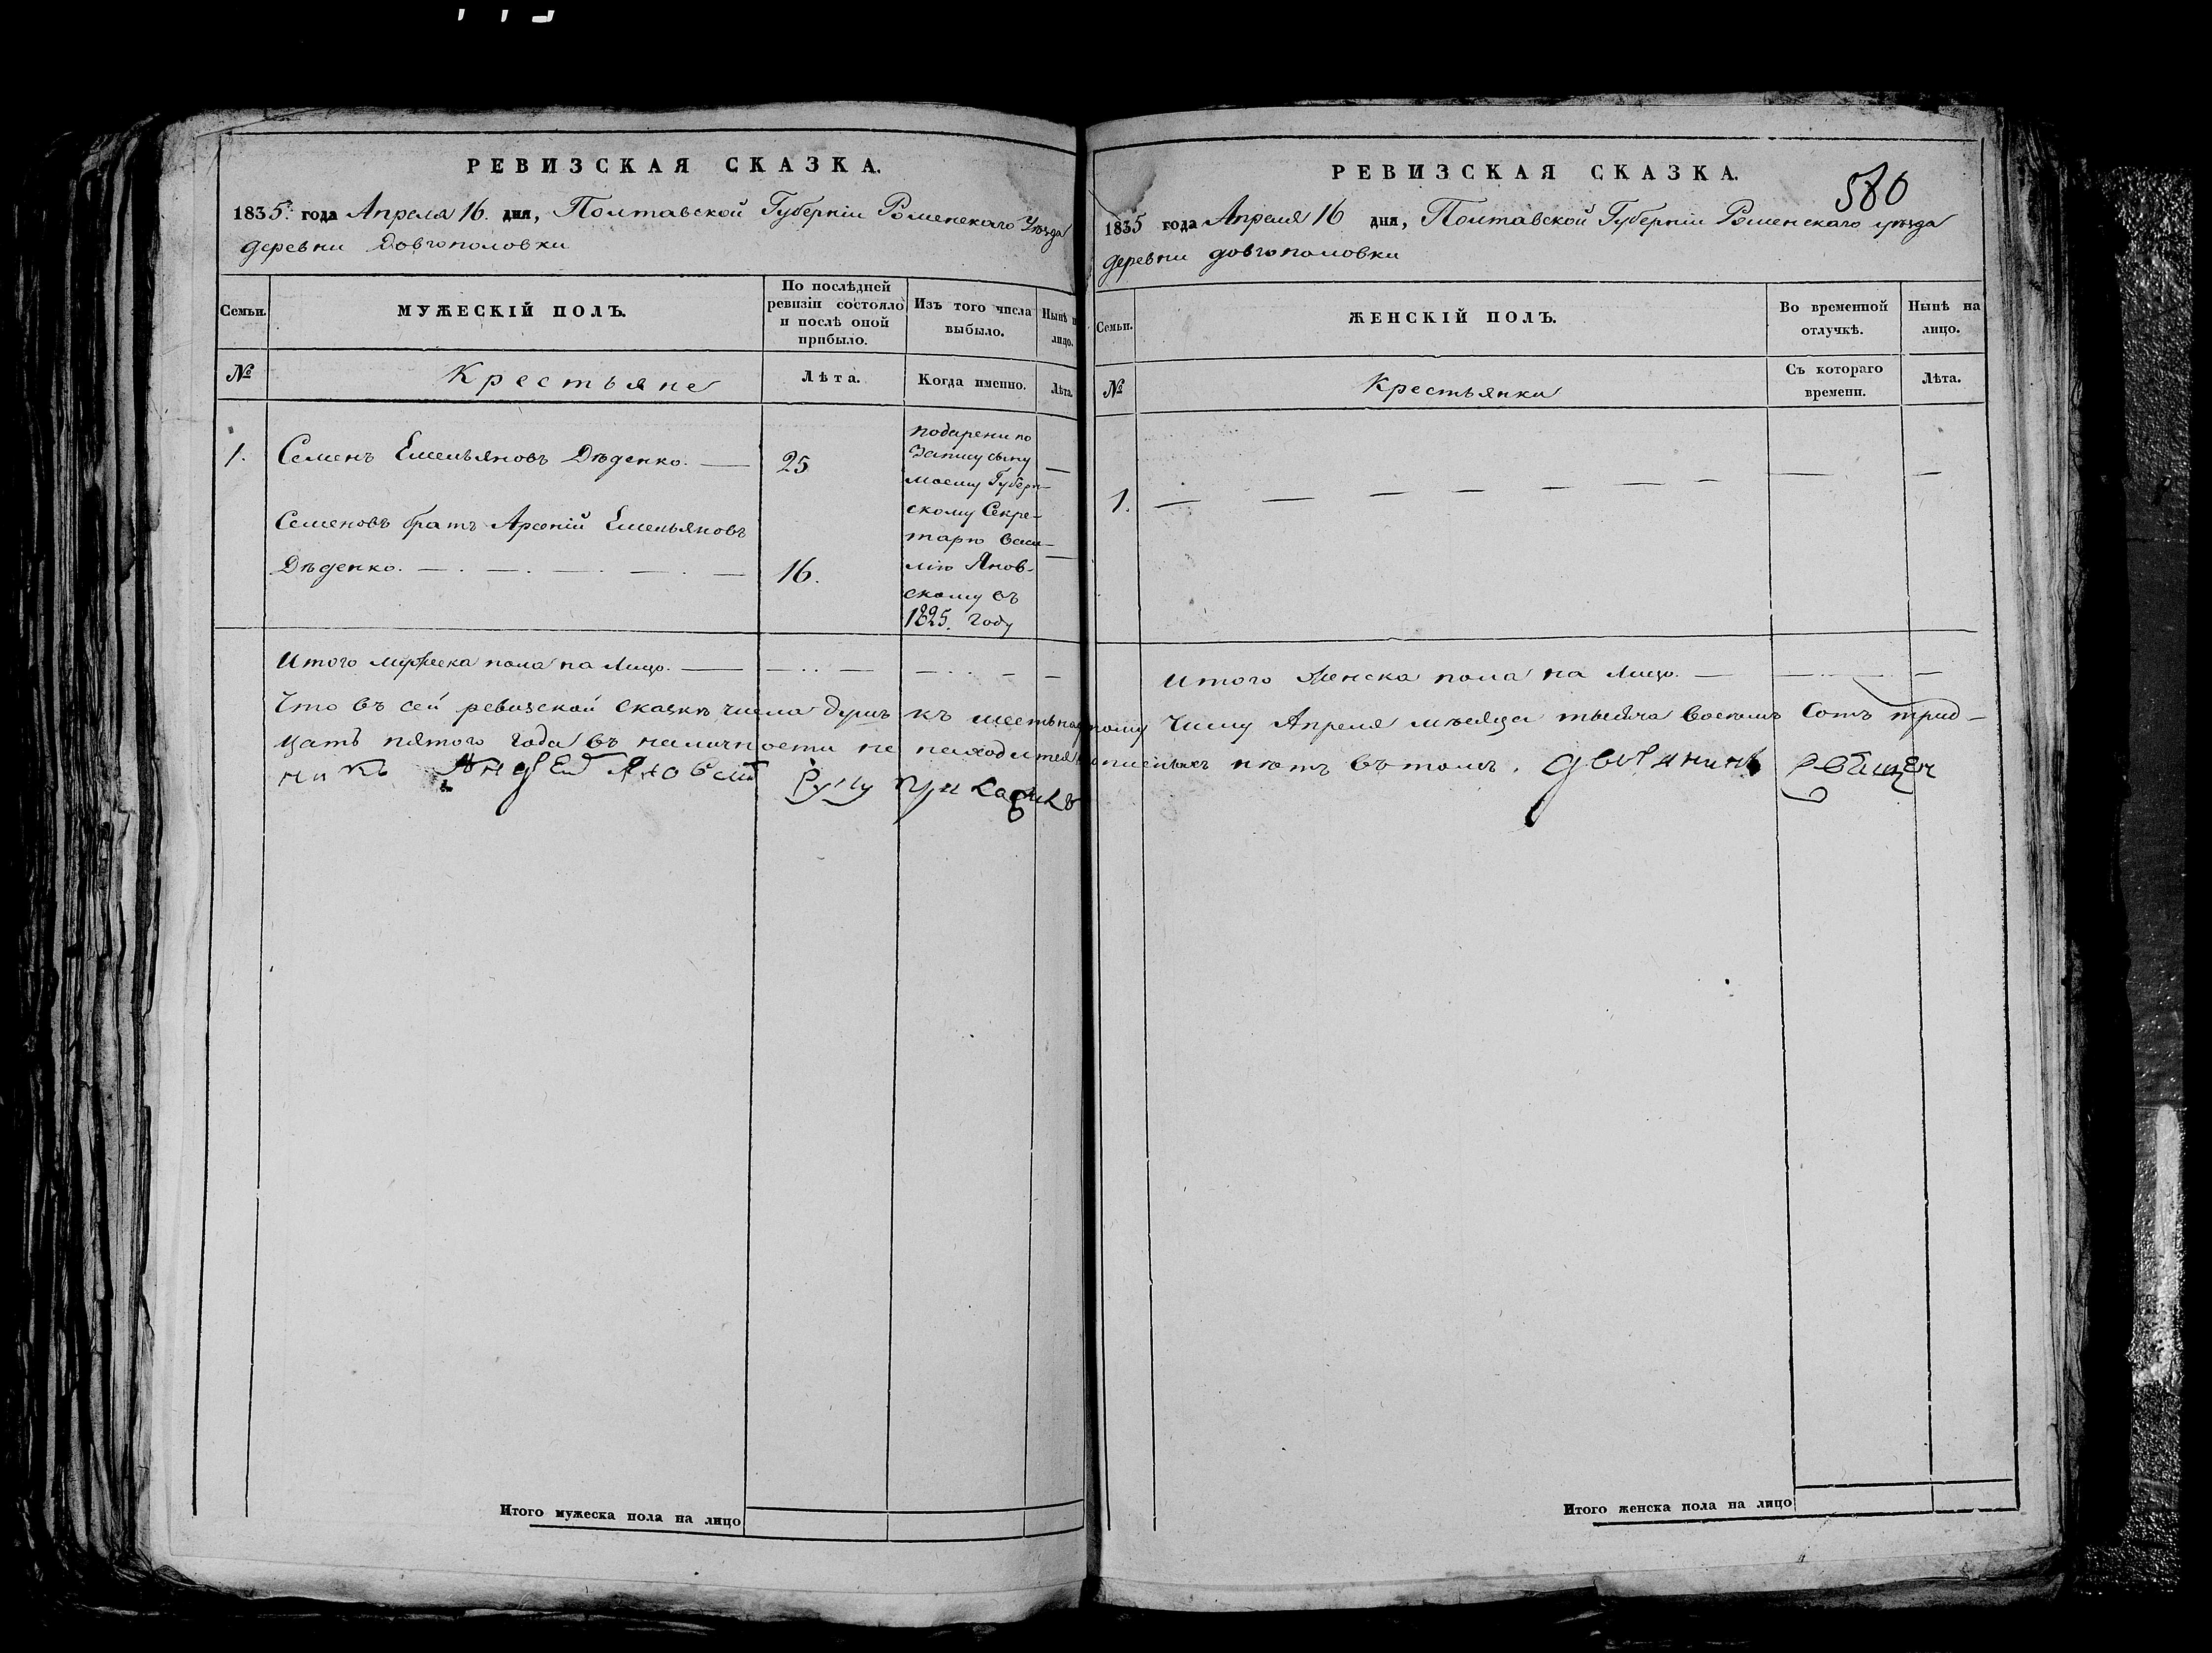 РЕВИЗСКАЯ СКАЗКА.
1835. года Апреля 16. дня, Полтавской Губерніи Роменскаго Уѣзда
деревни Довгополовки
Семьи.
МУЖЕСКІЙ ПОЛЪ.
По послѣдней
ревизіи состояло
и послѣ оной
прибыло.
Изъ того числа
выбыло.
Нынѣ н
лицо.
№
Крестьяне
Лѣта.
Когда именно.
Лѣта.
1. Семенъ Емельяновъ Дѣденко. — 25
Семеновъ братъ Арсеній Емельяновъ
Дѣденко. — . — . — . — . — 16.
подарени по
Запису сыну
моему Губерн-
скому Секре-
тарю Васи-
лію Янов-
скому въ
1825. году
Итого мужеска пола на лицо. —
РЕВИЗСКАЯ СКАЗКА.
580
1835 года Апреля 16 дня, Полтавской Губерніи Роменскаго уѣзда
деревни довгополовки
Семьи.
ЖЕНСКІЙ ПОЛЪ.
Во временной
отлучкѣ.
Нынѣ на
лицо.
№
Крестьянки
Съ котораго
времени.
Лѣта.
1. — — — — — — —
Итого женска пола на лицо. —
Что въ сей ревизской сказкѣ числа душъ къ шестьнадцатому числу Апреля мѣсяца тысяча восемъ сотъ трид-
цать пятого года въ наличности не находится и писменыхъ нѣтъ въ томъ. дворянинъ
Андрей Яновский руку приложилъ
Итого мужеска пола на лицо
Итого женска пола на лицо